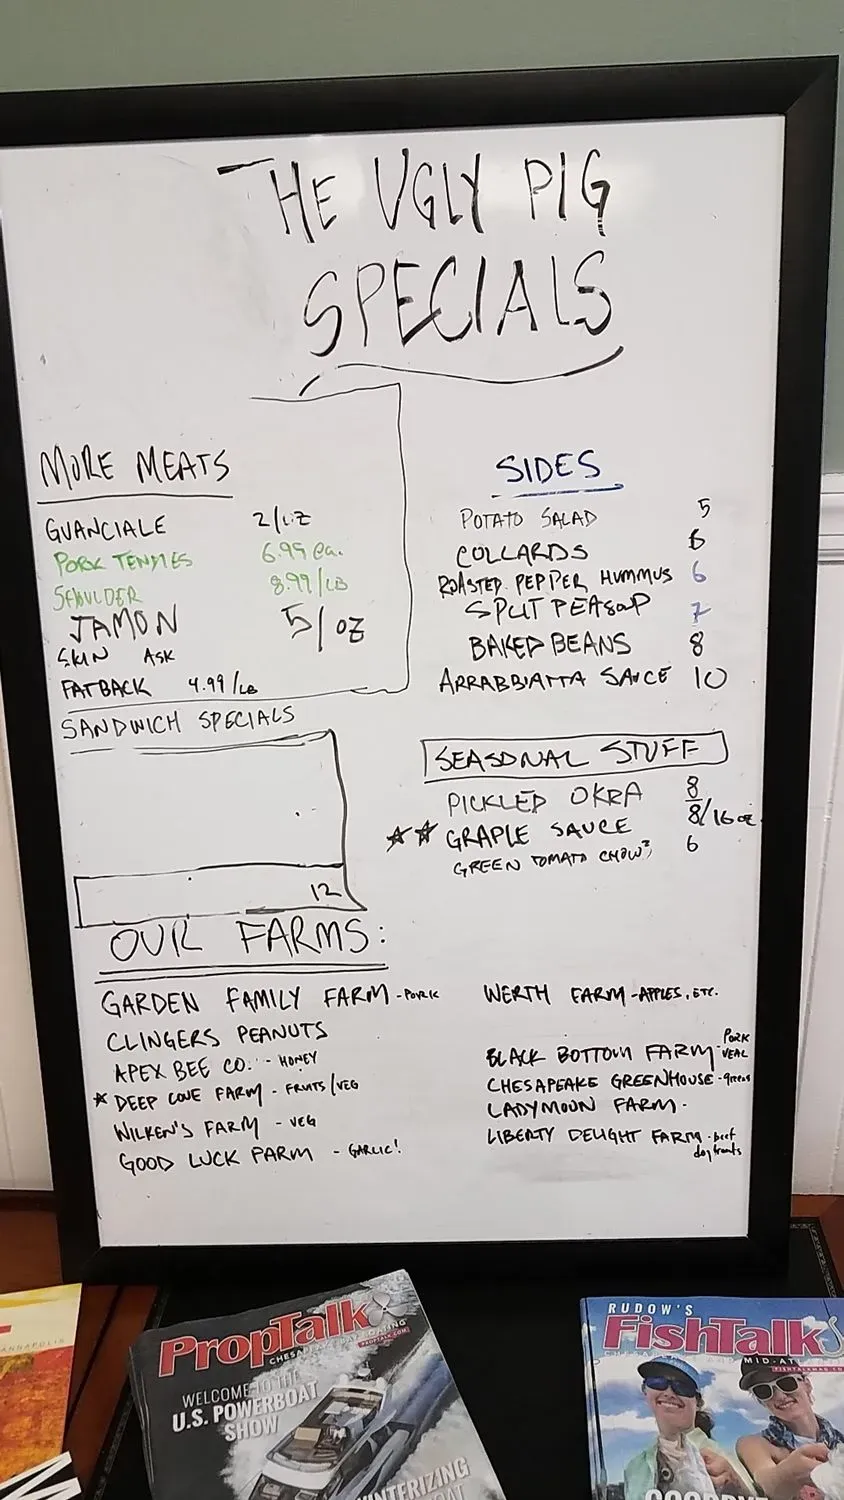 THE UGLY PIG
SPECIALS
MORE MEATS
GUANCIALE 2/OZ
PORK TENDIES 6.99 ea.
SHOULDER 8.99/LB
JAMON 5/OZ
SKIN ASK
FATBACK 4.99/LB
SANDWICH SPECIALS
12
SIDES
POTATO SALAD 5
COLLARDS 6
ROASTED PEPPER HUMMUS 6
SPLIT PEA SOUP 7
BAKED BEANS 8
ARRABBIATTA SAUCE 10
SEASONAL STUFF
PICKLED OKRA 8
GRAPLE SAUCE 8/16 oz
GREEN TOMATO CHOW² 6
OUR FARMS:
GARDEN FAMILY FARM - PORK
CLINGERS PEANUTS
APEX BEE CO. - HONEY
DEEP COVE FARM - FRUITS/VEG
WILKEN'S FARM - VEG
GOOD LUCK FARM - GARLIC!
WERTH FARM - APPLES, ETC.
BLACK BOTTOM FARM - PORK VEAL
CHESAPEAKE GREENHOUSE - greens
LADYMOON FARM -
LIBERTY DELIGHT FARM - beef
dog treats
PropTalk
CHESAPEAKE BOATING
PROPTALK.COM
WELCOME TO THE
U.S. POWERBOAT
SHOW
WINTERIZING
BOAT
RUDOW'S
FishTalk
AND MID-AT
ANNAPOLIS